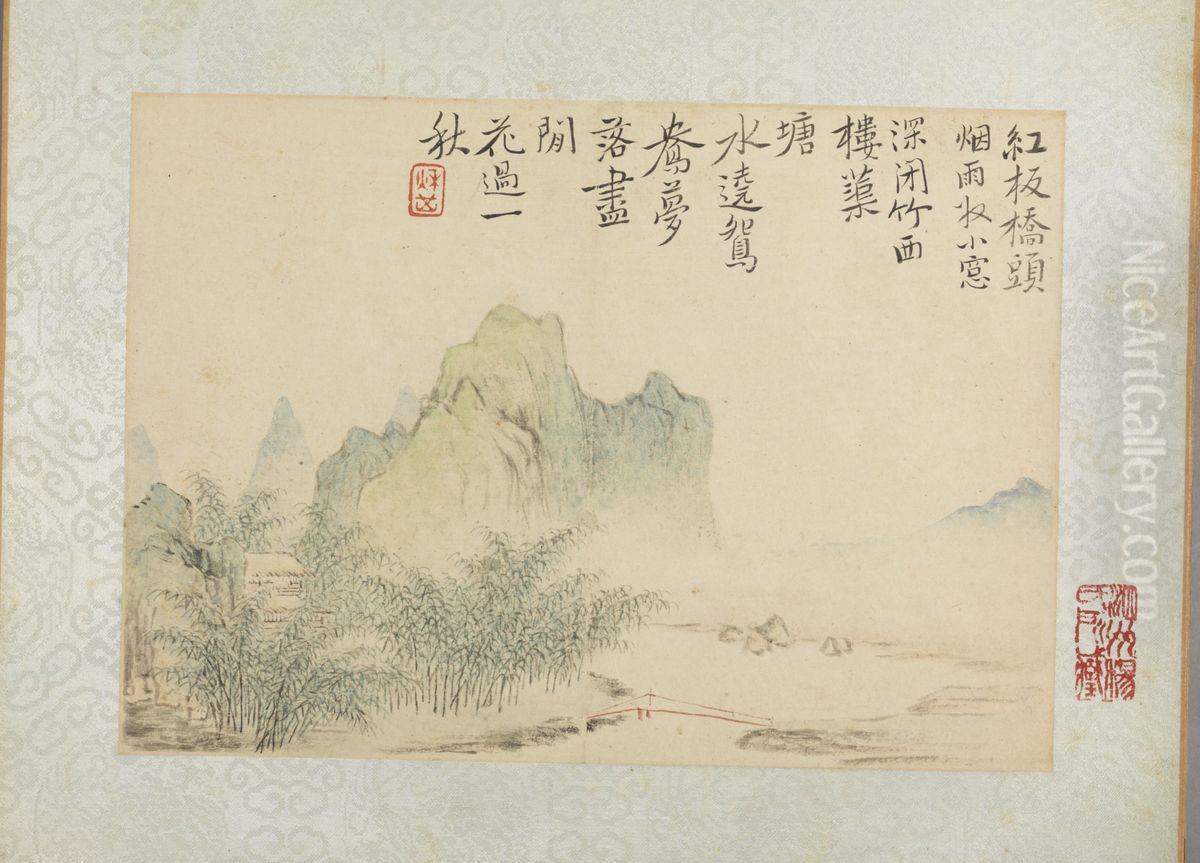 紅板橋頭
烟雨收小窓
深闭竹西
樓蕖
塘
水遶鴛
鴦夢
落盡
閒
花過一
秋
NiceArtGallery.com